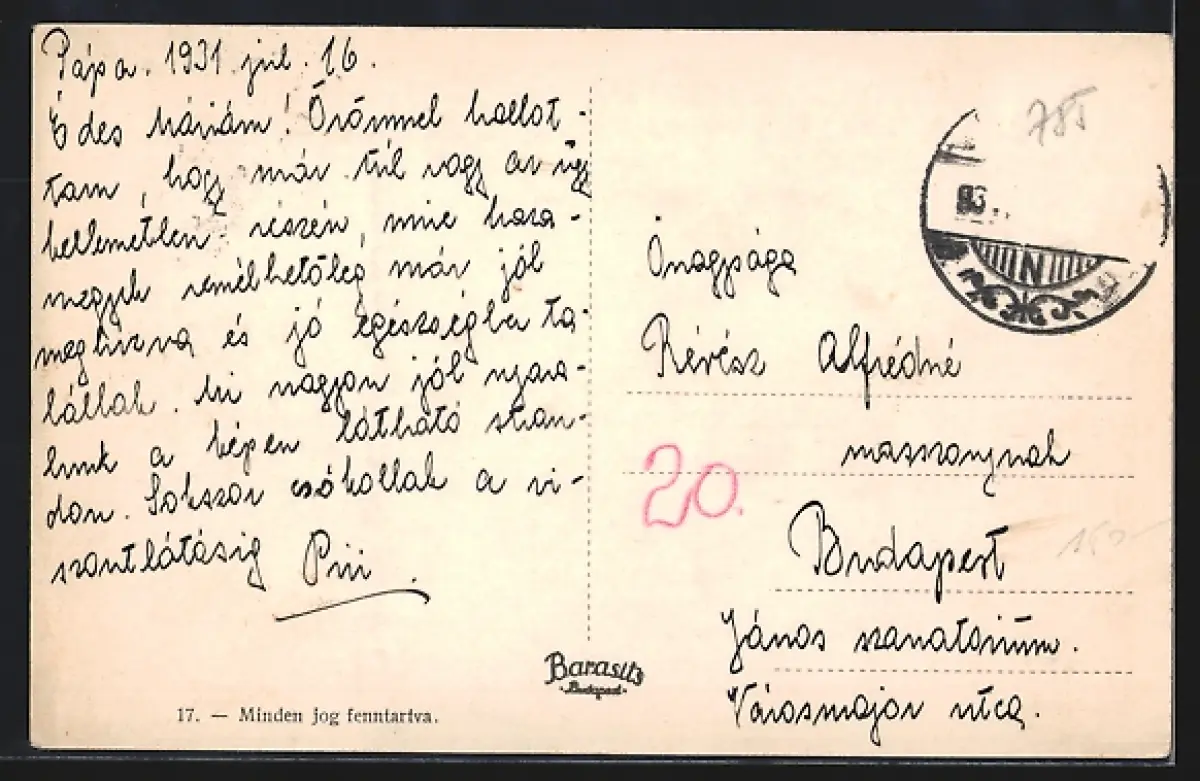 Pápa. 1931 júl. 16.
Édes Máriám! Örömmel hallot-
tam, hogy már túl vagy az ügy
kellemetlen részén, mire haza-
megyek remélhetőleg már jól
meghízva és jó egészségbe ta-
lállak. Mi nagyon jól nyara-
lunk a képen látható stran-
don. Sokszor csókollak a vi-
szontlátásig Piri.
Őnagysága
Révész Alfrédné
masszonynak
Budapest
János szanatórium.
Városmajor utca.
20.
785
150-
93.
N
Barasits
Budapest
17. — Minden jog fenntartva.